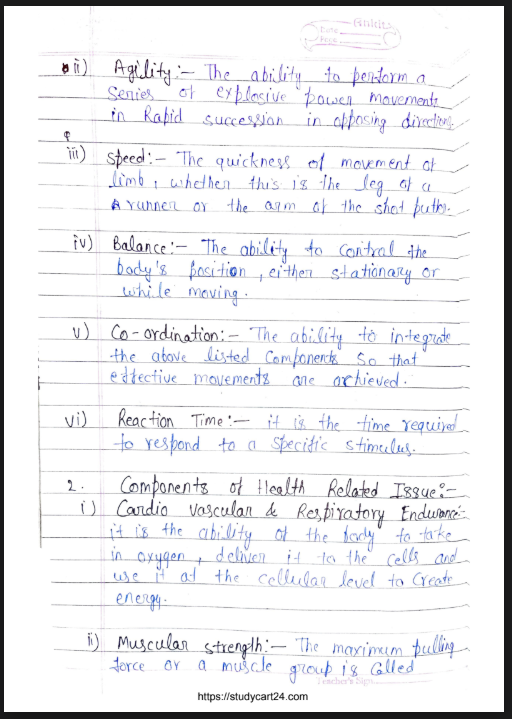 Ankit
Date
Page
ii) Agility:- The ability to perform a
series of explosive power movements
in Rapid succession in opposing directions
iii) speed:- The quickness of movement of
limb, whether this is the leg of a
runner or the arm of the shot putter.
iv) Balance:- The ability to control the
body's position, either stationary or
while moving.
v) Co-ordination:- The ability to integrate
the above listed components so that
effective movements are achieved.
vi) Reaction Time:- it is the time required
to respond to a specific stimulus.
2. Components of Health Related Issue:-
i) Cardio vascular & Respiratory Endurance-
it is the ability of the body to take
in oxygen, deliver it to the cells and
use it at the cellular level to create
energy.
ii) Muscular strength:- The maximum pulling
force or a muscle group is called
Teacher's Sign
https://studycart24.com